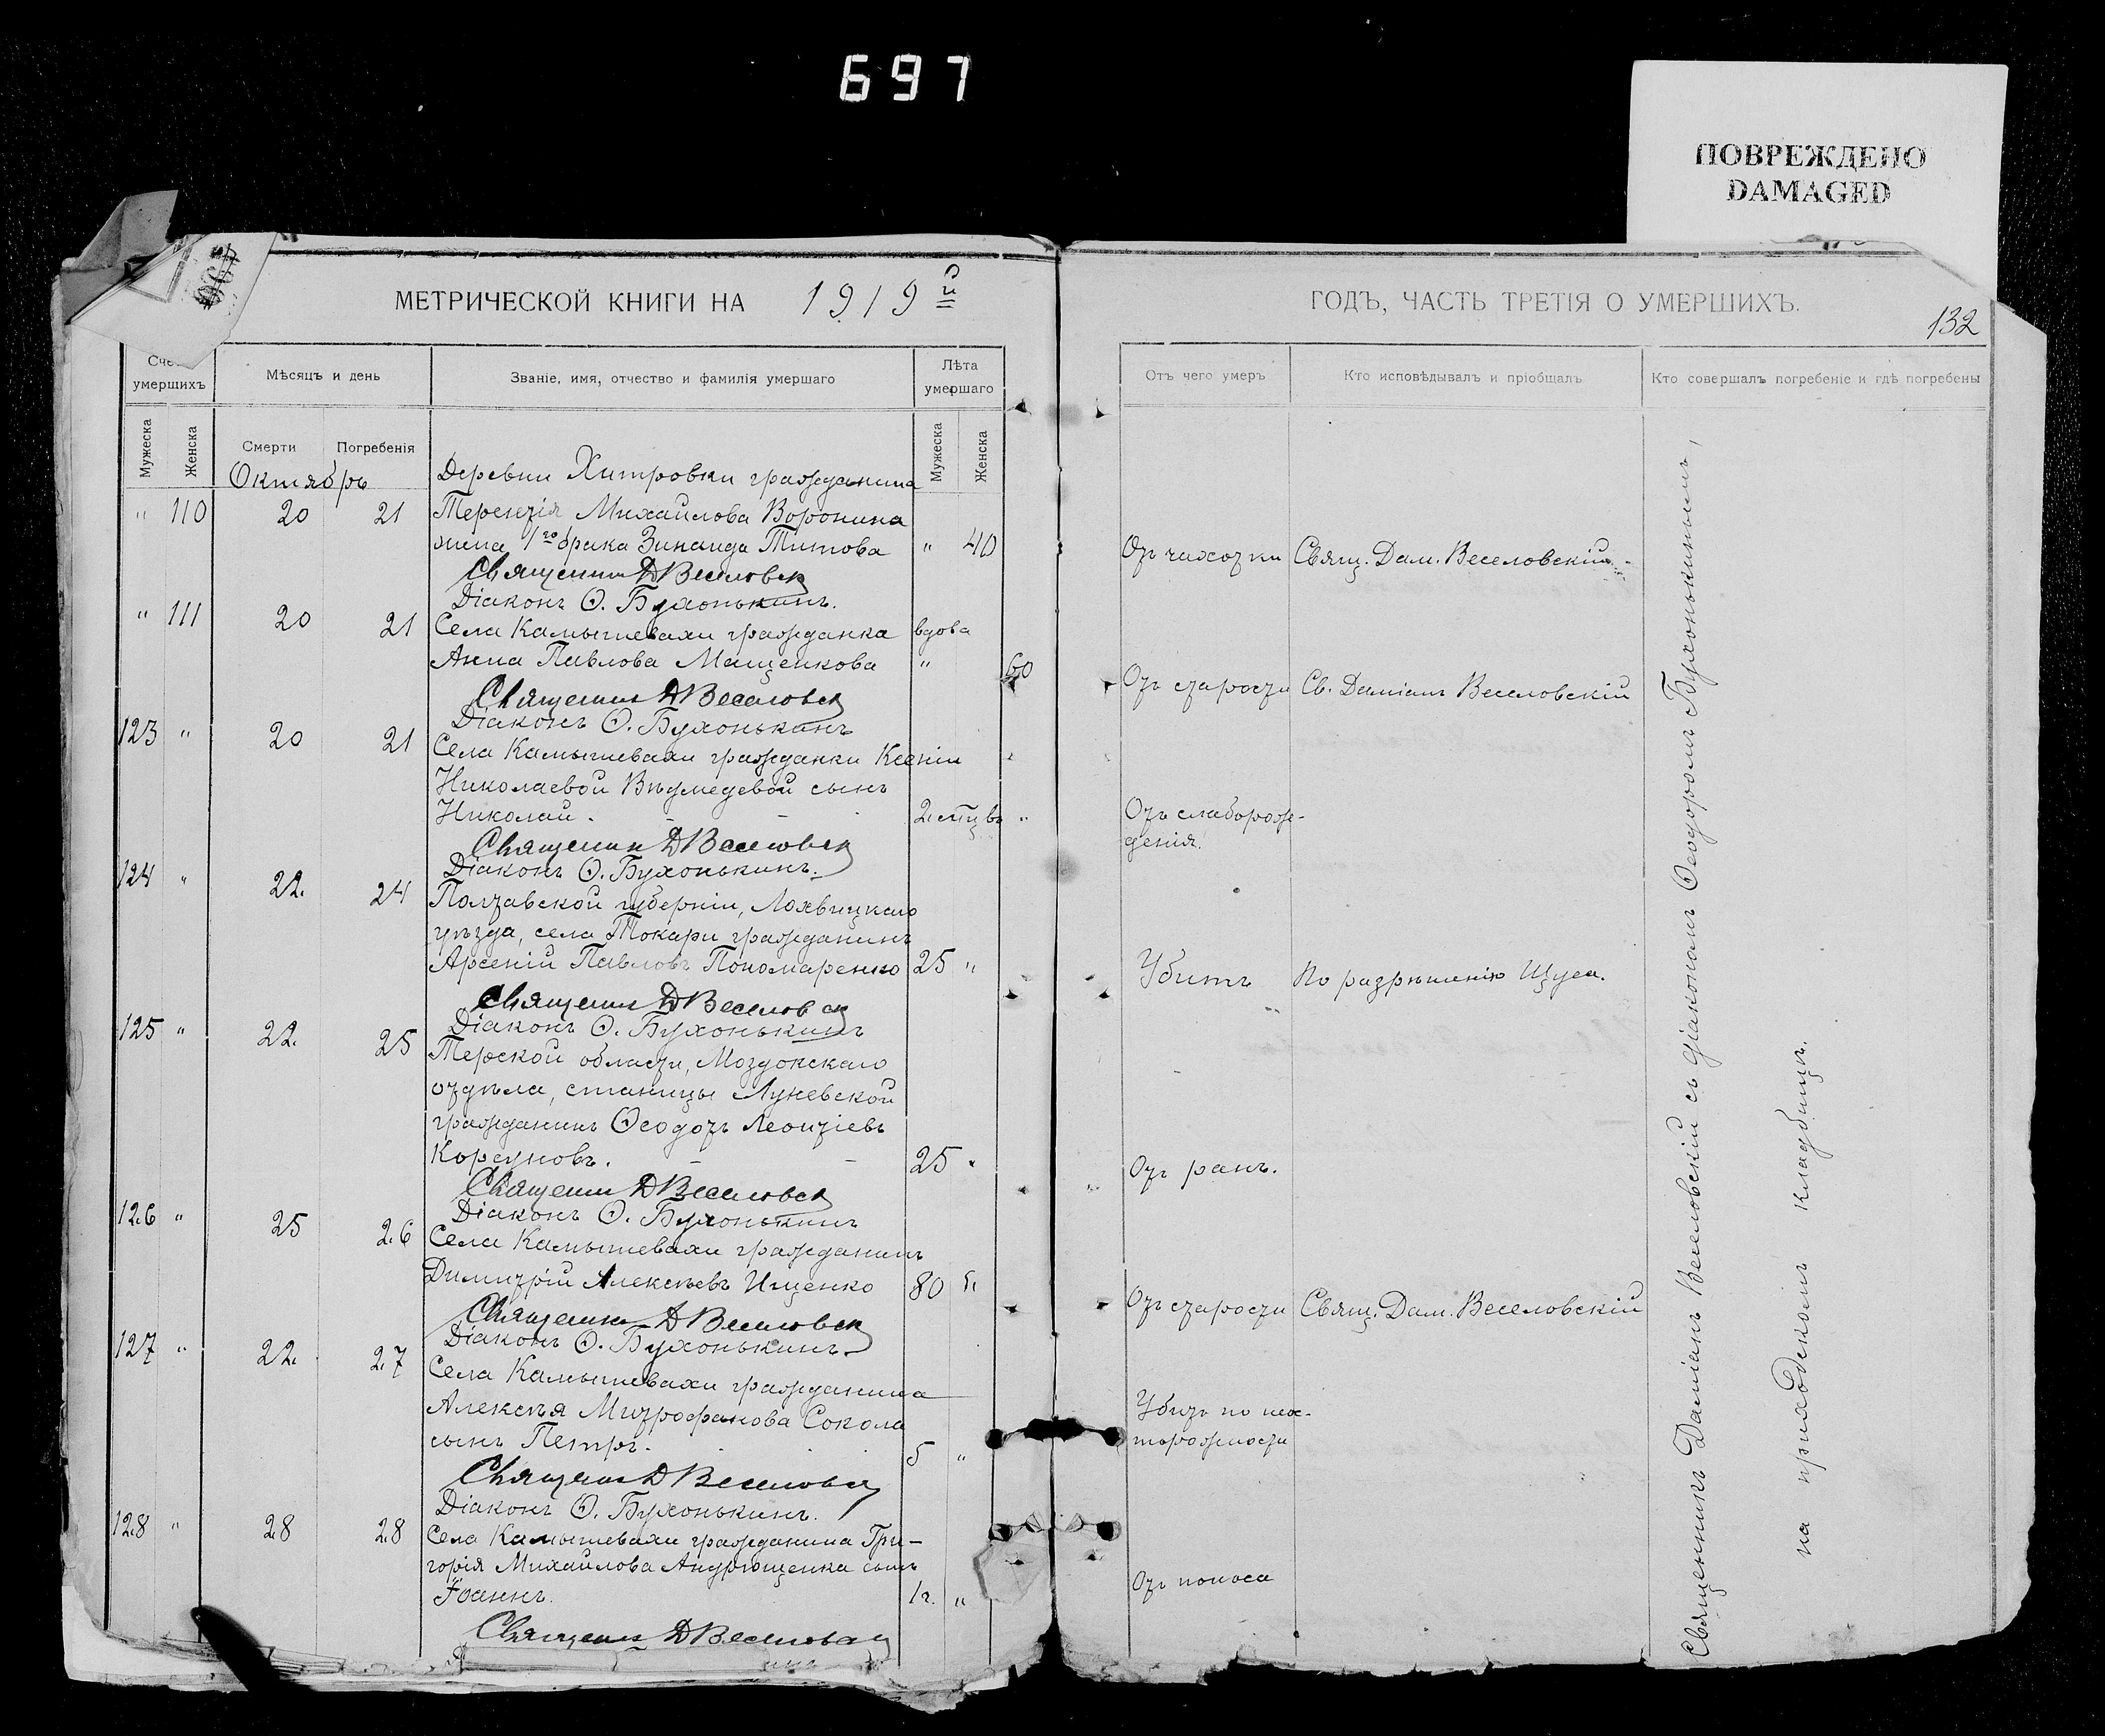 697
ПОВРЕЖДЕНО
DAMAGED
МЕТРИЧЕСКОЙ КНИГИ НА 1919й
ГОДЪ, ЧАСТЬ ТРЕТІЯ О УМЕРШИХЪ.
132
умершихъ
Мѣсяцъ и день
Званіе, имя, отчество и фамилія умершаго
Лѣта умершаго
Отъ чего умеръ
Кто исповѣдывалъ и пріобщалъ
Кто совершалъ погребеніе и гдѣ погребены
Мужеска
Женска
Смерти
Погребенія
Мужеска
Женска
Октябрь
Деревни Хитровки гражданина
" 110 20 21 Терентія Михайлова Воронина
жена 1го брака Зинаида Титова " 40 Отъ чахотки Свящ. Дам. Веселовскій
Священник Д Веселовск
Діаконъ Ѳ. Бухонькинъ.
" 111 20 21 Села Камышевахи гражданка вдова
Анна Павлова Мащенкова " 60 Отъ старости Св. Даміанъ Веселовскій
Священник Д Веселовск
Діаконъ Ѳ. Бухонькинъ
123 " 20 21 Села Камышевахи гражданки Ксеніи
Николаевой сынъ
Николай. 2 мцвъ " Отъ слаборож-
денія.
Священник Д Веселовск
Діаконъ Ѳ. Бухонькинъ.
124 " 22. 24 Полтавской губерніи, Лохвицкаго
уѣзда, села Токари гражданинъ
Арсеній Павловъ Пономаренко 25 " Убитъ По разрѣшенію Щуся.
Священник Д Веселовск
Діаконъ Ѳ. Бухонькинъ
125 " 22. 25 Терской области, Моздокскаго
отдѣла, станицы Луневской
гражданинъ Ѳеодотъ Леонтіевъ
Корсуновъ. 25 " Отъ ранъ.
Священник Д Веселовск
Діаконъ Ѳ. Бухонькинъ
126 " 25 26 Села Камышевахи гражданинъ
Димитрій Алексѣевъ Ищенко 80 " Отъ старости Свящ. Дам. Веселовскій
Священник Д Веселовск
Діаконъ Ѳ. Бухонькинъ.
127 " 22. 27 Села Камышевахи гражданина
Алексѣя Митрофанова Сокола Убитъ по неос-
сынъ Петръ. 5 " торожности
Священник Д Веселовск
Діаконъ Ѳ. Бухонькинъ.
128 " 28 28 Села Камышевахи гражданина Гри-
горія Михайлова Андрющенка сынъ
Іоаннъ. 1г. " Отъ поноса
Священник Д Веселовск
Священникъ Даміанъ Веселовскій съ діакономъ Ѳеодоромъ Бухонькинымъ,
на приходскомъ кладбищѣ.